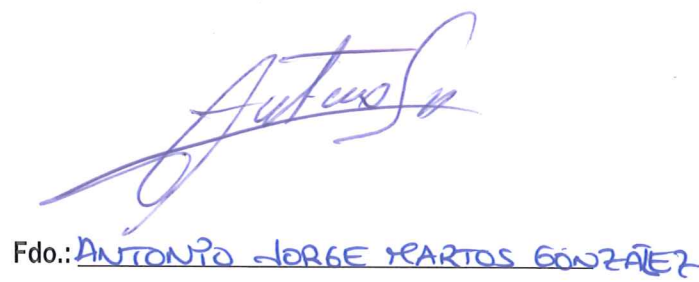 Fdo.: ANTONIO JORGE MARTOS GONZÁLEZ